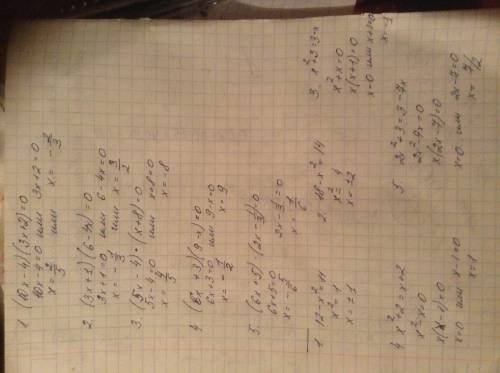 1. (10x-4)(3x+2)=0
10x-4=0 или 3x+2=0
x=2/5 или x=-2/3
2. (3x+1)(6-4x)=0
3x+1=0 или 6-4x=0
x=-1/3 или x=3/2
3. (5x-4)·(x+8)=0
5x-4=0 или x+8=0
x=4/5 x=-8
4. (6x+3)(9-x)=0
6x+3=0 или 9-x=0
x=-1/2 x=9.
5. (6x+5)·(2x-1/3)=0
6x+5=0 2x-1/3=0
x=-5/6 x=1/6
1. 12-x²=11
x²=1
x=±1
2. 18-x²=14
x²=4
x=±2
3. x²+3=3-x
x²+x=0
x(x+1)=0
x=0 или x+1=0
x=-1
4. x²+2=x+2
x²-x=0
x(x-1)=0
x=0 или x-1=0
x=1
5. 2x²+3=3-7x
x(2x-7)=0
x=0 или 2x-7=0
x=7/2